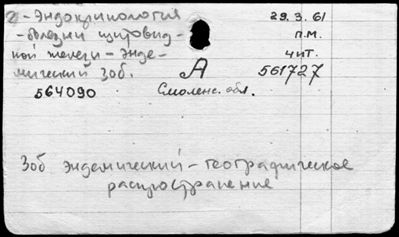 - Эндокринология
- болезни щитовид-
ной железы - энде-
мический зоб.
564090
29.3.61
п.м.
чит.
561727
А
Смоленс. обл.
Зоб эндемический - географическое
распространение